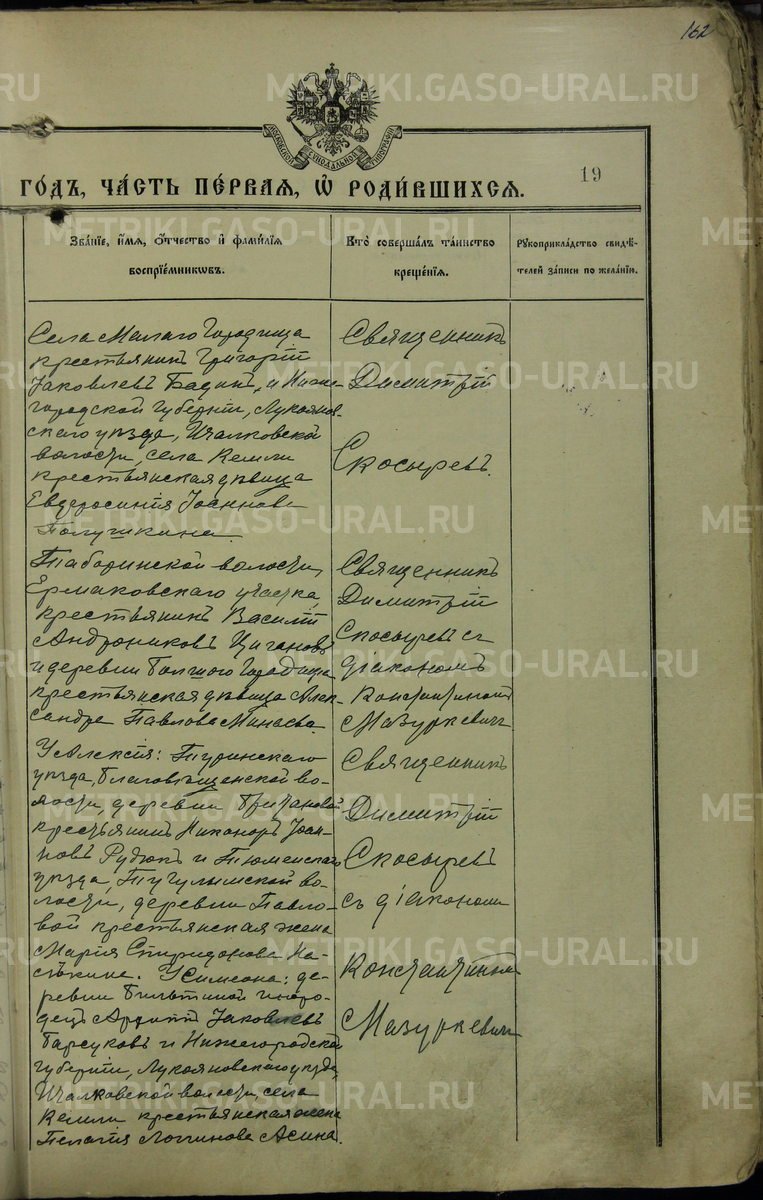 162
МОСКОВСКОЙ СУНОДАЛЬНОЙ ТИПОГРАФІИ
19
ГОДЪ, ЧАСТЬ ПЕРВАЯ, Ѡ РОДИВШИХСЯ.
Званіе, имя, отчество и фамилія воспріемниковъ.
Кто совершалъ таинство крещенія.
Рукоприкладство свидѣтелей записи по желанію.
Села Малаго Городища
крестьянинъ Григорій
Іаковлевъ Бадинъ, и Ниже-
городской губерніи, Лукоянов-
скаго уѣзда, Ичалковской
волости, села Кемли
крестьянская дѣвица
Евфросинія Іоаннова
Полушкина.
Священникъ
Димитрій
Скосыревъ.
Таборинской волости,
Ермаковскаго участка,
крестьянинъ Василій
Андрониковъ Цигановъ
и деревни Большого Городища
крестьянская дѣвица Алек-
сандра Павлова Минаева.
Священникъ
Димитрій
Скосыревъ съ
діакономъ
Константиномъ
Мазуркевичъ
У Алексія: Туринскаго
уѣзда, Благовѣщенской во-
лости, деревни
крестьянинъ Никаноръ Іоан-
новъ Рудюкъ и Тюменскаго
уѣзда, Тугулымской во-
лости, деревни Павло-
вой крестьянская жена
Марія Спиридонова На-
сѣкина. У Симеона: де-
ревни иноро-
децъ Архипъ Іаковлевъ
Барсуковъ и Нижегородской
губерніи, Лукояновскаго уѣзда,
Ичалковской волости, села
Кемли крестьянская жена
Пелагія Логгинова Асина.
Священникъ
Димитрій
Скосыревъ
съ діакономъ
Константиномъ
Мазуркевичъ
METRIKI.GASO-URAL.RU